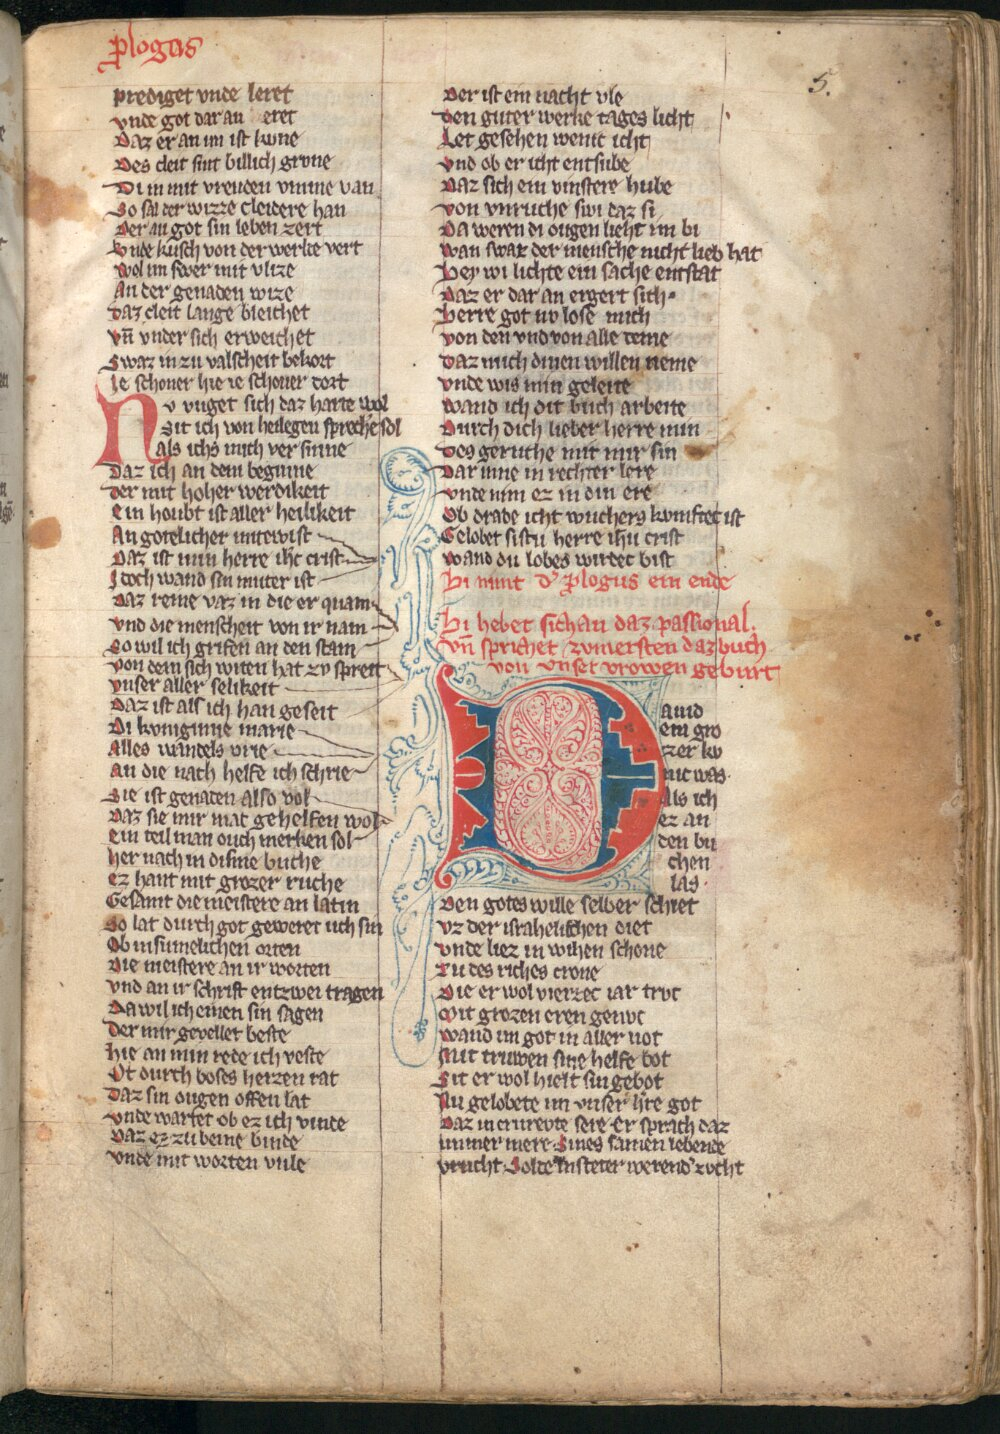 Plogus
5.
prediget vnde leret
vnde got dar an eret
Daz er an im ist kvne
Des cleit sint billich grvne
Di in mit vreuden vmme van
So sal der wizze cleidere han
Der an got sin leben zert
Vnde kusch von der werlte vert
Wol im swer mit vlize
An der genaden wize
daz cleit lange bleichet
vn̄ vnder sich erweichet
Swaz in zu valscheit bekort
Ie schoner hie ie schoner dort
Nv vuget sich daz harte wol
Sit ich von heilegen spreche sol
als ichs mich versinne
Daz ich an dem beginne
der mit hoher werdikeit
Ein houbt ist aller heilikeit
An gotelicher mitewist
Daz ist min herre ih̄c crist
Idoch wand sin muter ist
daz reine vaz in die er quam
vnd die menscheit von ir nam
So wil ich grifen an den stam
von dem sich witen hat zv spreit
vnser aller selikeit
Daz ist als ich han geseit
Di kvniginne marie
Alles wandels vrie
an die nach helfe ich schrie
Sie ist genaden also vol
Daz sie mir mac gehelfen wol
ein teil man ouch merken sol
her nach in disme buche
ez hant mit grozer ruche
Gesamt die meistere an latin
So lat durch got geweret uch sin
Ob in sumelichen orten
Die meistere an ir worten
vnd an ir schrift entzwei tragen
Da wil ich einen sin sagen
der mir gevellet beste
hie an min rede ich veste
Ot durch boses herzen rat
Daz sin ougen offen lat
vnde wartet ob ez ich vinde
Daz ez zu beine binde
vnde mit worten vule
Der ist ein nacht vle
den guter werke tages licht
Let gesehen wenic icht
vnd ob er icht entsube
Daz sich ein vinstere hube
von vnruche swi daz si
Da weren di ougen lieht im bi
wan swaz der mensche nicht lieb hat
Hey wi lichte ein sache entstat
Daz er dar an ergert sich
herre got nv lose mich
von den vnd von alle deme
daz mich dinen willen neme
vnde wis min geleite
wand ich dit buch arbeite
Durch dich lieber herre min
des geruche mit mir sin
Dar inne in rechter lere
vnde nim ez in din ere
Ob drabe icht wuchers kvmftec ist
Gelobet sistu herre ih̄u crist
wand du lobes wirdec bist
Hi nimt d' Plogus ein ende
Hi hebet sich an daz passional.
Vn̄ sprichet zvmersten daz buch
von vnser vrowen geburt
Dauid
ein gro
zer kv
nic was
Als ich
ez an
den bu
chen
las.
Den gotes wille selber schiet
vz der israhelischen diet
vnde liez in wihen schone
zu des riches crone
Die er wol vierzec iar trvc
Mit grozen eren genvc
wand im got in aller not
Mit truwen sine helfe bot
Sit er wol hielt sin gebot
Nu gelobete im vnser h're got
Daz in ervrevte sere Er sprach daz
immer mere Sines samen lebende
vrucht Solde in steter werend' zvcht